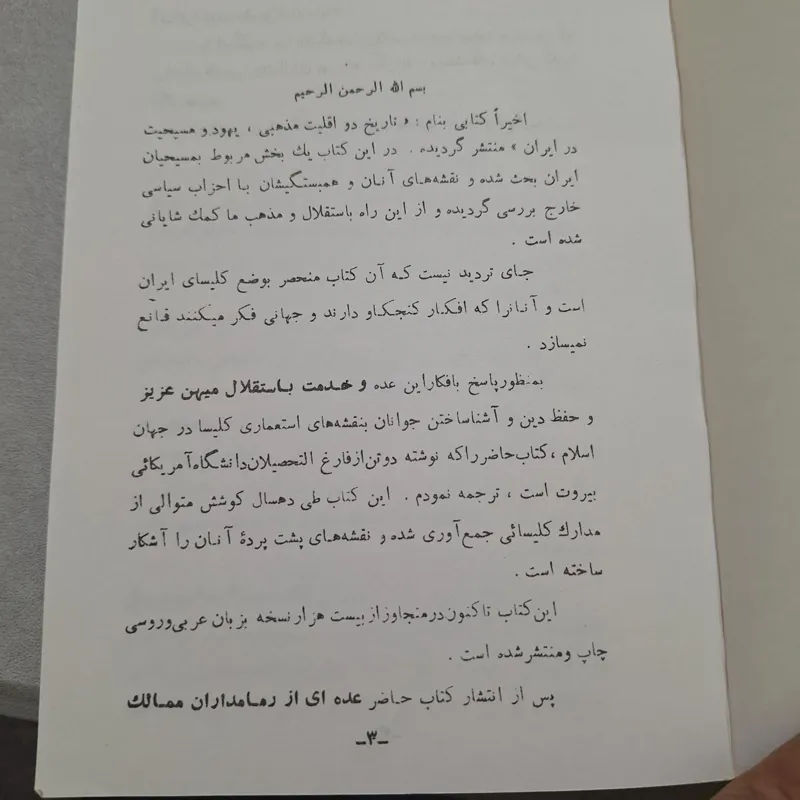 بسم الله الرحمن الرحیم
اخیراً کتابی بنام : « تاریخ دو اقلیت مذهبی ، یهود و مسیحیت
در ایران » منتشر گردیده . در این کتاب یك بخش مربوط بمسیحیان
ایران بحث شده و نقشه‌های آنان و همبستگیشان با احزاب سیاسی
خارج بررسی گردیده و از این راه باستقلال و مذهب ما کمك شایانی
شده است .
جای تردید نیست که آن کتاب منحصر بوضع کلیسای ایران
است و آنانرا که افکار کنجکاو دارند و جهانی فکر میکنند قانع
نمیسازد .
بمنظور پاسخ بافکار این عده و خدمت باستقلال میهن عزیز
و حفظ دین و آشناساختن جوانان بنقشه‌های استعماری کلیسا در جهان
اسلام ، کتاب حاضر را که نوشته دوتن از فارغ التحصیلان دانشگاه آمریکائی
بیروت است ، ترجمه نمودم . این کتاب طی دهسال کوشش متوالی از
مدارك کلیسائی جمع‌آوری شده و نقشه‌های پشت پردهٔ آنان را آشکار
ساخته است .
این کتاب تاکنون در متجاوز از بیست هزار نسخه بزبان عربی و روسی
چاپ و منتشر شده است .
پس از انتشار کتاب حاضر عده ای از زمامداران ممالك
-۳-